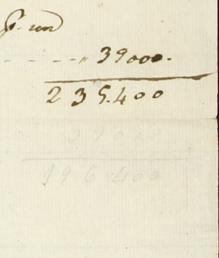 39000.
235.400
39000
196400